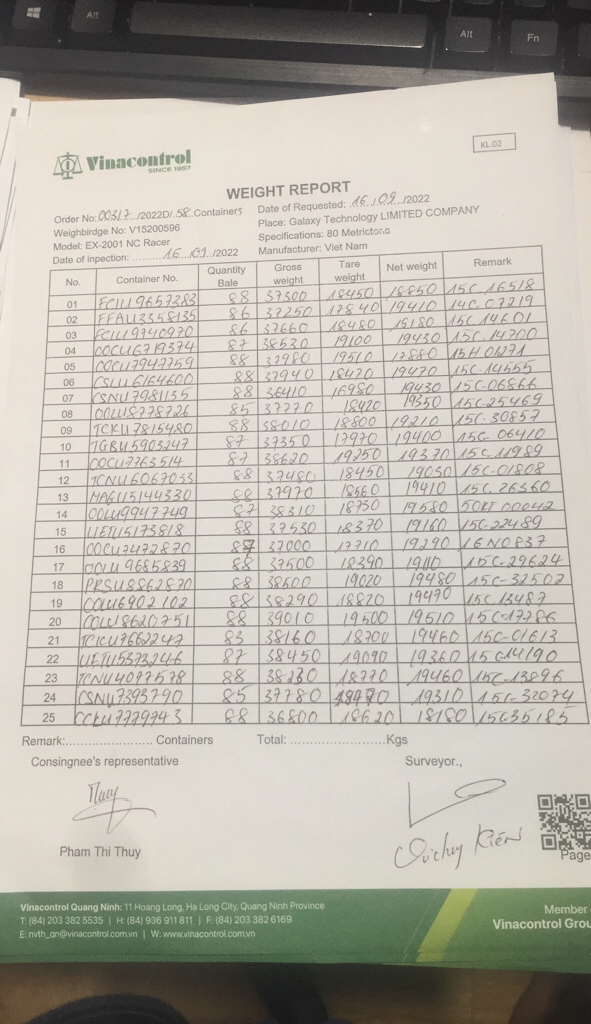 Alt
Alt
Fn
Vinacontrol
SINCE 1957
KL.02
WEIGHT REPORT
Order No: 00317 /2022D/ 58 Containers
Date of Requested: 16 / 09 /2022
Weighbirdge No: V15200596
Place: Galaxy Technology LIMITED COMPANY
Model: EX-2001 NC Racer
Specifications: 80 Metrictons
Date of inpection: 16 / 09 /2022
Manufacturer: Viet Nam
No. Container No. Quantity Bale Gross weight Tare weight Net weight Remark
01 FCIU9657383 88 37300 18450 18850 15C.16518
02 FFAU3358135 86 37250 17840 19410 14C.07219
03 FCIU9740970 86 37660 18480 19180 15C.14601
04 OOCU6719374 87 38530 19100 19430 15C.14700
05 OOCU7947759 88 19510 15H 01271
06 CSLU6164600 88 37940 18470 19470 15C-14555
07 CSNU7981135 88 36410 16980 19430 15C-06866
08 OOLU8778726 85 37770 18420 19350 15C.25469
09 TCKU7815480 88 38010 18800 19210 15C-30857
10 TGBU5903247 87 37350 17970 19400 15C-06410
11 OOCU7763514 87 38620 19250 19370 15C.11989
12 TCNU6067053 88 37480 18450 19030 15C-01808
13 MAGU5144330 88 37970 18560 19410 15C.26360
14 OOLU9947749 87 38310 18730 19580 50RT 00042
15 UETU5173818 88 37530 18370 19160 15C-22489
16 OOCU7472870 87 37000 17710 19290 16N0837
17 OOLU9685839 88 37500 18390 19110 15C-29624
18 PRSU8862870 88 38500 19020 19480 15C-32502
19 OOLU6902102 88 38290 18820 19470 15C 13487
20 OOLU8620751 88 39010 19500 19510 15C-17786
21 TCKU7662247 83 38160 18700 19460 15C-01613
22 UETU5573246 87 38450 19090 19360 15C14190
23 TCNU4097578 88 38230 18770 19460 15C-13896
24 CSNU7393790 85 37780 18470 19310 15C-32074
25 CCLU7779743 88 36800 18620 18180 15C35185
Remark:........................ Containers Total: ........................Kgs
Consingnee's representative
Surveyor.,
Thuy
Pham Thi Thuy
Page
Vinacontrol Quang Ninh: 11 Hoang Long, Ha Long City, Quang Ninh Province
T: (84) 203 382 5535 | H: (84) 936 911 811 | F: (84) 203 382 6169
E: nvth_qn@vinacontrol.com.vn | W: www.vinacontrol.com.vn
Member
Vinacontrol Grou